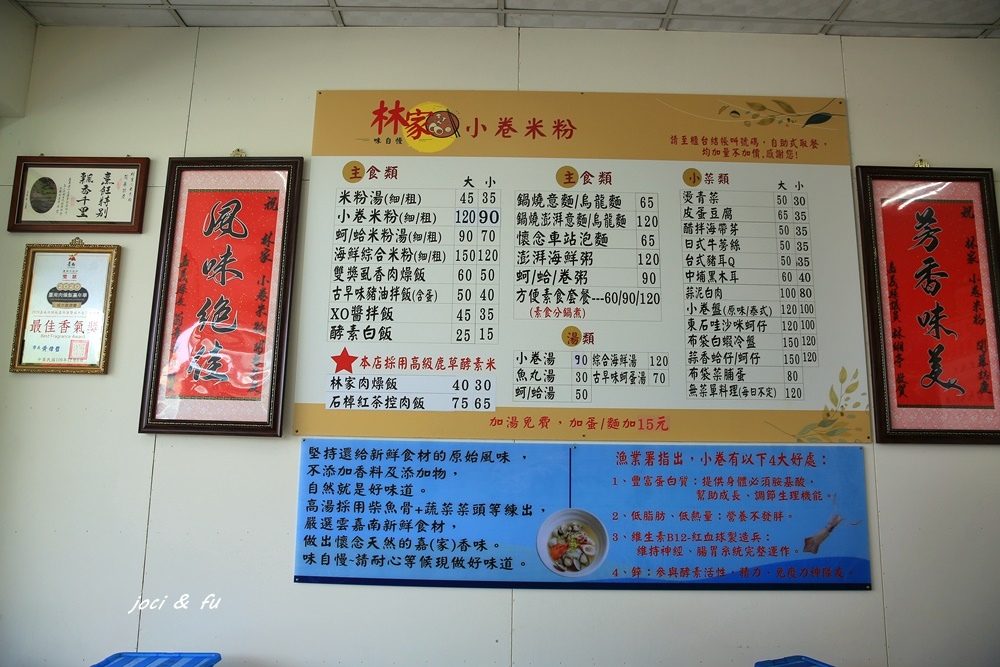 林家 小卷米粉
味自慢
請至櫃台結帳叫號碼，自助式取餐，
均加量不加價,感謝您!
主食類
大 小
米粉湯(細/粗) 45 35
小卷米粉(細/粗) 120 90
蚵/蛤米粉湯(細/粗) 90 70
海鮮綜合米粉(細/粗) 150 120
雙獎虱香肉燥飯 60 50
古早味豬油拌飯(含蛋) 50 40
XO醬拌飯 45 35
酵素白飯 25 15
本店採用高級鹿草酵素米
林家肉燥飯 40 30
石棹紅茶控肉飯 75 65
主食類
鍋燒意麵/烏龍麵 65
鍋燒澎湃意麵/烏龍麵 120
懷念車站泡麵 65
澎湃海鮮粥 120
蚵/蛤/卷粥 90
方便素食套餐---60/90/120
(素食分鍋煮)
湯類
小卷湯 90 綜合海鮮湯 120
魚丸湯 30 古早味蚵蛋湯 70
蚵/蛤湯 50
小菜類
大 小
燙青菜 50 30
皮蛋豆腐 65 35
醋拌海帶芽 50 35
日式牛蒡絲 50 35
台式豬耳Q 50 35
中埔黑木耳 60 40
蒜泥白肉 100 80
小卷盤(原味/泰式) 120 100
東石哇沙咪蚵仔 120 100
布袋白蝦冷盤 150 120
蒜香蛤仔/蚵仔 150 120
布袋菜脯蛋 80
無菜單料理(每日不定) 120
加湯免費，加蛋/麵加15元
堅持還給新鮮食材的原始風味，
不添加香料及添加物，
自然就是好味道。
高湯採用柴魚骨+蔬菜菜頭等練出，
嚴選雲嘉南新鮮食材，
做出懷念天然的嘉(家)香味。
味自慢-請耐心等候現做好味道。
漁業署指出，小卷有以下4大好處：
1、豐富蛋白質：提供身體必須胺基酸，
幫助成長、調節生理機能。
2、低脂肪、低熱量：營養不發胖。
3、維生素B12-紅血球製造兵：
維持神經、腸胃系統完整運作。
4、鋅：參與酵素活性，精力、免疫力
風味絕佳
祝
林家 小卷米粉
芳香味美
祝
林家 小卷米粉
烹飪特別
飄香千里
2020
最佳香氣獎
joci & fu